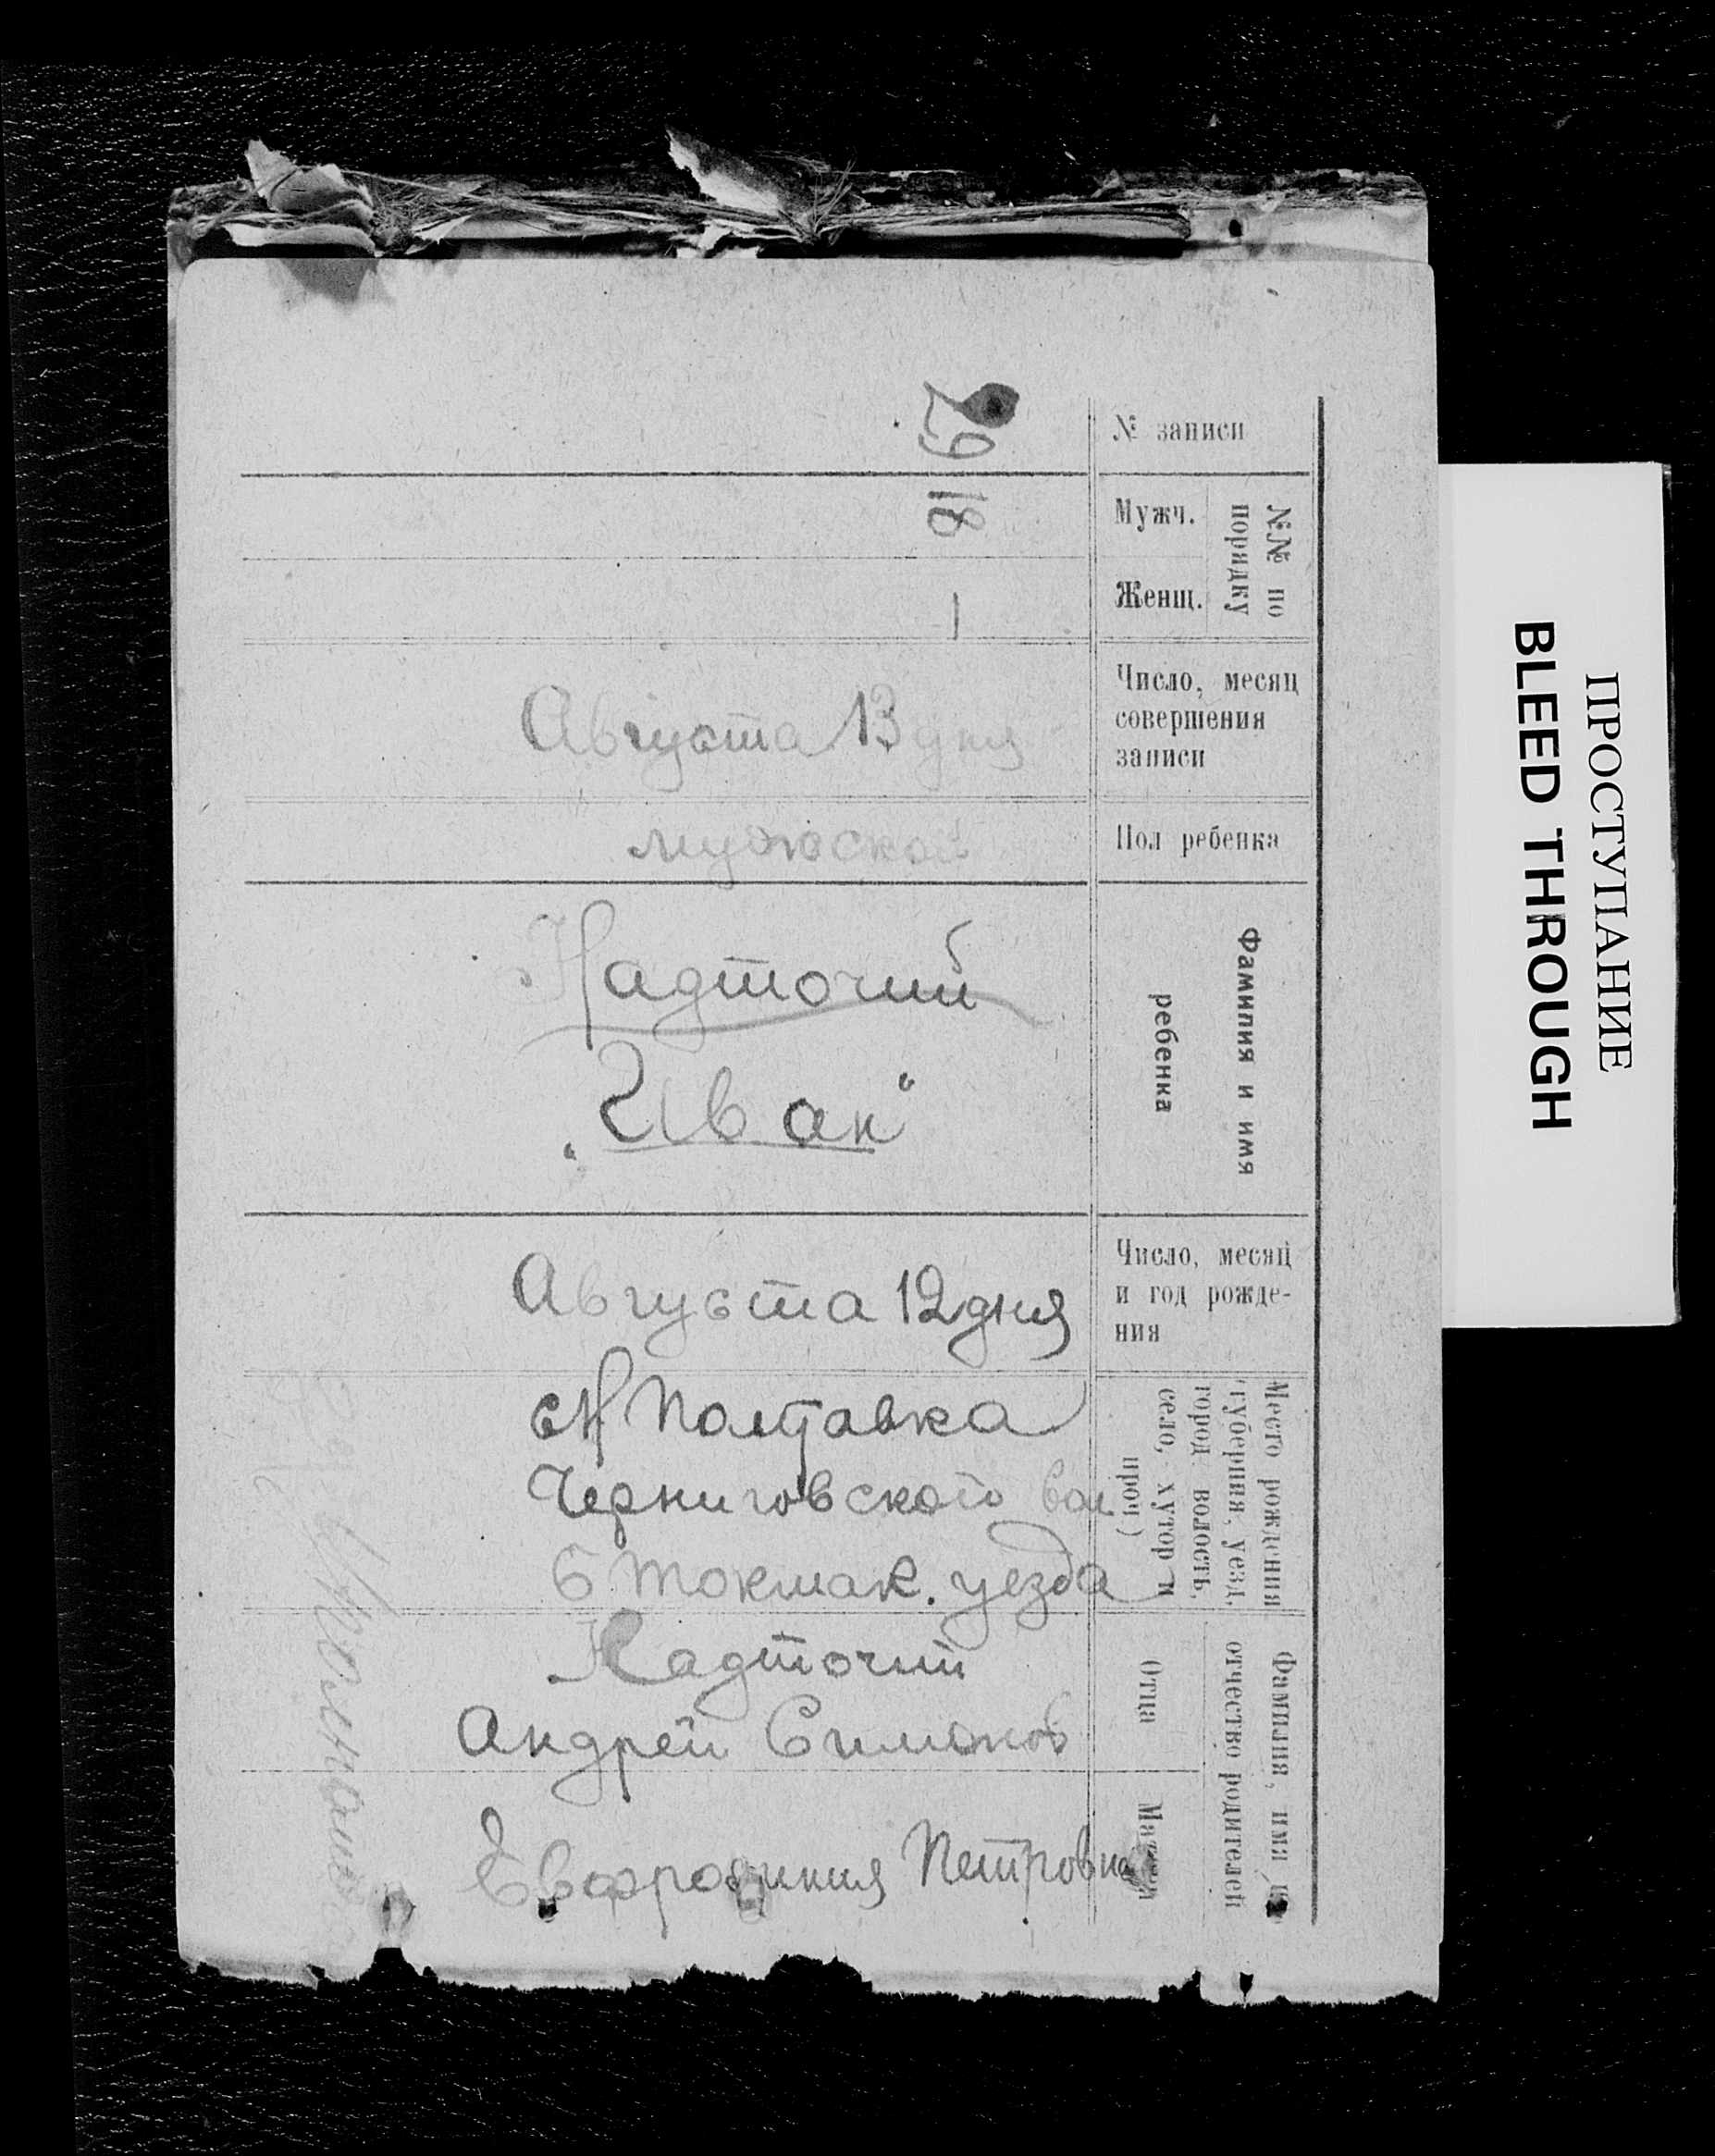 № записи
29
№№ по
порядку
Мужч.
18
Женщ.
Число, месяц
совершения
записи
Августа 13 дня
Пол ребенка
мужской
Фамилия и имя
ребенка
Надточий
„Иван“
Число, месяц
и год рожде-
ния
Августа 12 дня
Место рождения
(губерния, уезд,
город волость,
село, хутор и
проч)
с Н Полтавка
Черниговской вол
Б Токмак. уезда
Фамилия, имя и
отчество родителей
Отца
Надточий
Андрей Симонов
Матери
Евфросиния Петровна
ПРОСТУПАНИЕ
BLEED THROUGH